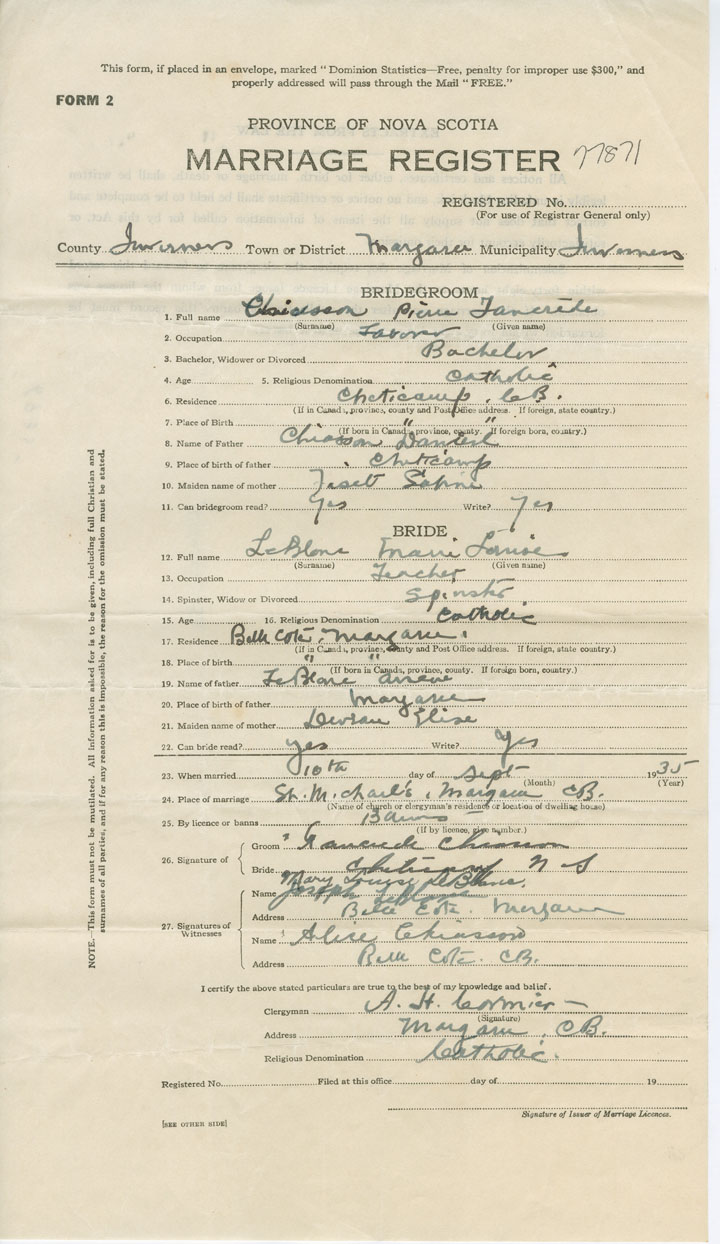 This form, if placed in an envelope, marked "Dominion Statistics—Free, penalty for improper use $300," and
properly addressed will pass through the Mail "FREE."
FORM 2
PROVINCE OF NOVA SCOTIA
MARRIAGE REGISTER 77871
REGISTERED No.
(For use of Registrar General only)
County Inverness Town or District Margaree Municipality Inverness
BRIDEGROOM
1. Full name Chiasson Pierre Tancrède
(Surname) (Given name)
2. Occupation
3. Bachelor, Widower or Divorced Bachelor
4. Age 5. Religious Denomination Catholic
6. Residence Cheticamp, C.B.
(If in Canada, province, county and Post Office address. If foreign, state country.)
7. Place of Birth " "
(If born in Canada, province, county. If foreign born, country.)
8. Name of Father Chiasson
9. Place of birth of father Cheticamp
10. Maiden name of mother
11. Can bridegroom read? Yes Write? Yes
BRIDE
12. Full name LeBlanc Marie Louise
(Surname) (Given name)
13. Occupation Teacher
14. Spinster, Widow or Divorced Spinster
15. Age 16. Religious Denomination Catholic
17. Residence Belle Cote, Margaree.
(If in Canada, province, county and Post Office address. If foreign, state country.)
18. Place of birth " "
(If born in Canada, province, county. If foreign born, country.)
19. Name of father LeBlanc
20. Place of birth of father Margaree
21. Maiden name of mother Deveau Elise
22. Can bride read? yes Write? Yes
23. When married 10th day of Sept 1935
(Month) (Year)
24. Place of marriage St. Michael's, Margaree C.B.
(Name of church or clergyman's residence or location of dwelling house)
25. By licence or banns Banns
(If by licence, give number.)
26. Signature of
Groom Tancrede Chiasson
Cheticamp N S
Bride Mary Louise LeBlanc
27. Signatures of Witnesses
Name Joseph
Address Belle Cote. Margaree
Name Alice Chiasson
Address Belle Cote. CB.
I certify the above stated particulars are true to the best of my knowledge and belief.
Clergyman A. H. Cormier
(Signature)
Address Margaree, C.B.
Religious Denomination Catholic.
Registered No. Filed at this office day of 19
Signature of Issuer of Marriage Licences.
[SEE OTHER SIDE]
NOTE.—This form must not be mutilated. All information asked for is to be given, including full Christian and
surnames of all parties, and if for any reason this is impossible, the reason for the omission must be stated.